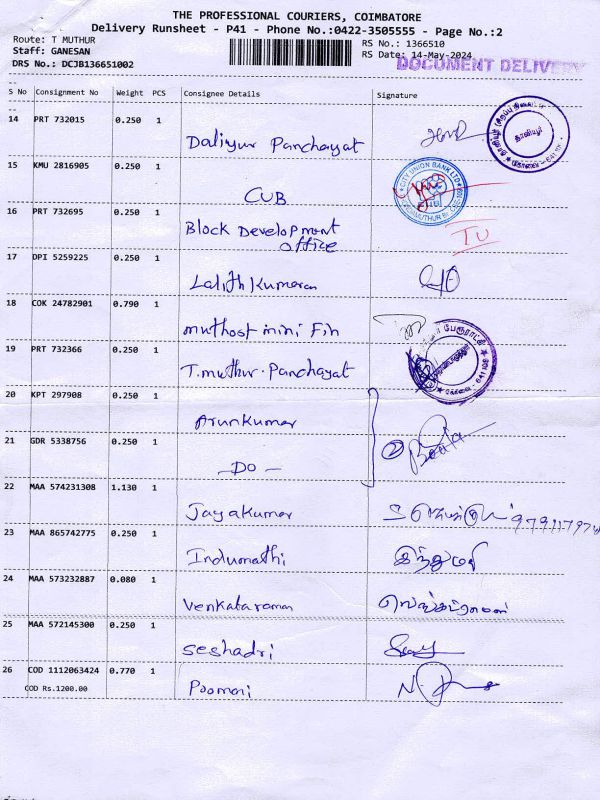 THE PROFESSIONAL COURIERS, COIMBATORE
Delivery Runsheet - P41 - Phone No.:0422-3505555 - Page No.:2
Route: T MUTHUR
Staff: GANESAN
DRS No.: DCJB136651002
RS No.: 1366510
RS Date: 14-May-2024
DOCUMENT DELIVERY
S No Consignment No Weight PCS Consignee Details Signature
14 PRT 732015 0.250 1
Daliyur Panchayat
15 KMU 2816905 0.250 1
CUB
CITY UNION BANK LTD
16 PRT 732695 0.250 1
Block Development
office
TU
17 DPI 5259225 0.250 1
Lalithkumaran
18 COK 24782901 0.790 1
muthost mini Fin
19 PRT 732366 0.250 1
T.muthur.Panchayat
20 KPT 297908 0.250 1
Arunkumar
21 GDR 5338756 0.250 1
- DO -
2
22 MAA 574231308 1.130 1
Jayakumar
23 MAA 865742775 0.250 1
Indumathi இந்துமதி
24 MAA 573232887 0.080 1
Venkataraman
25 MAA 572145300 0.250 1
Seshadri
26 COD 1112063424 0.770 1
COD Rs.1200.00
Poomani